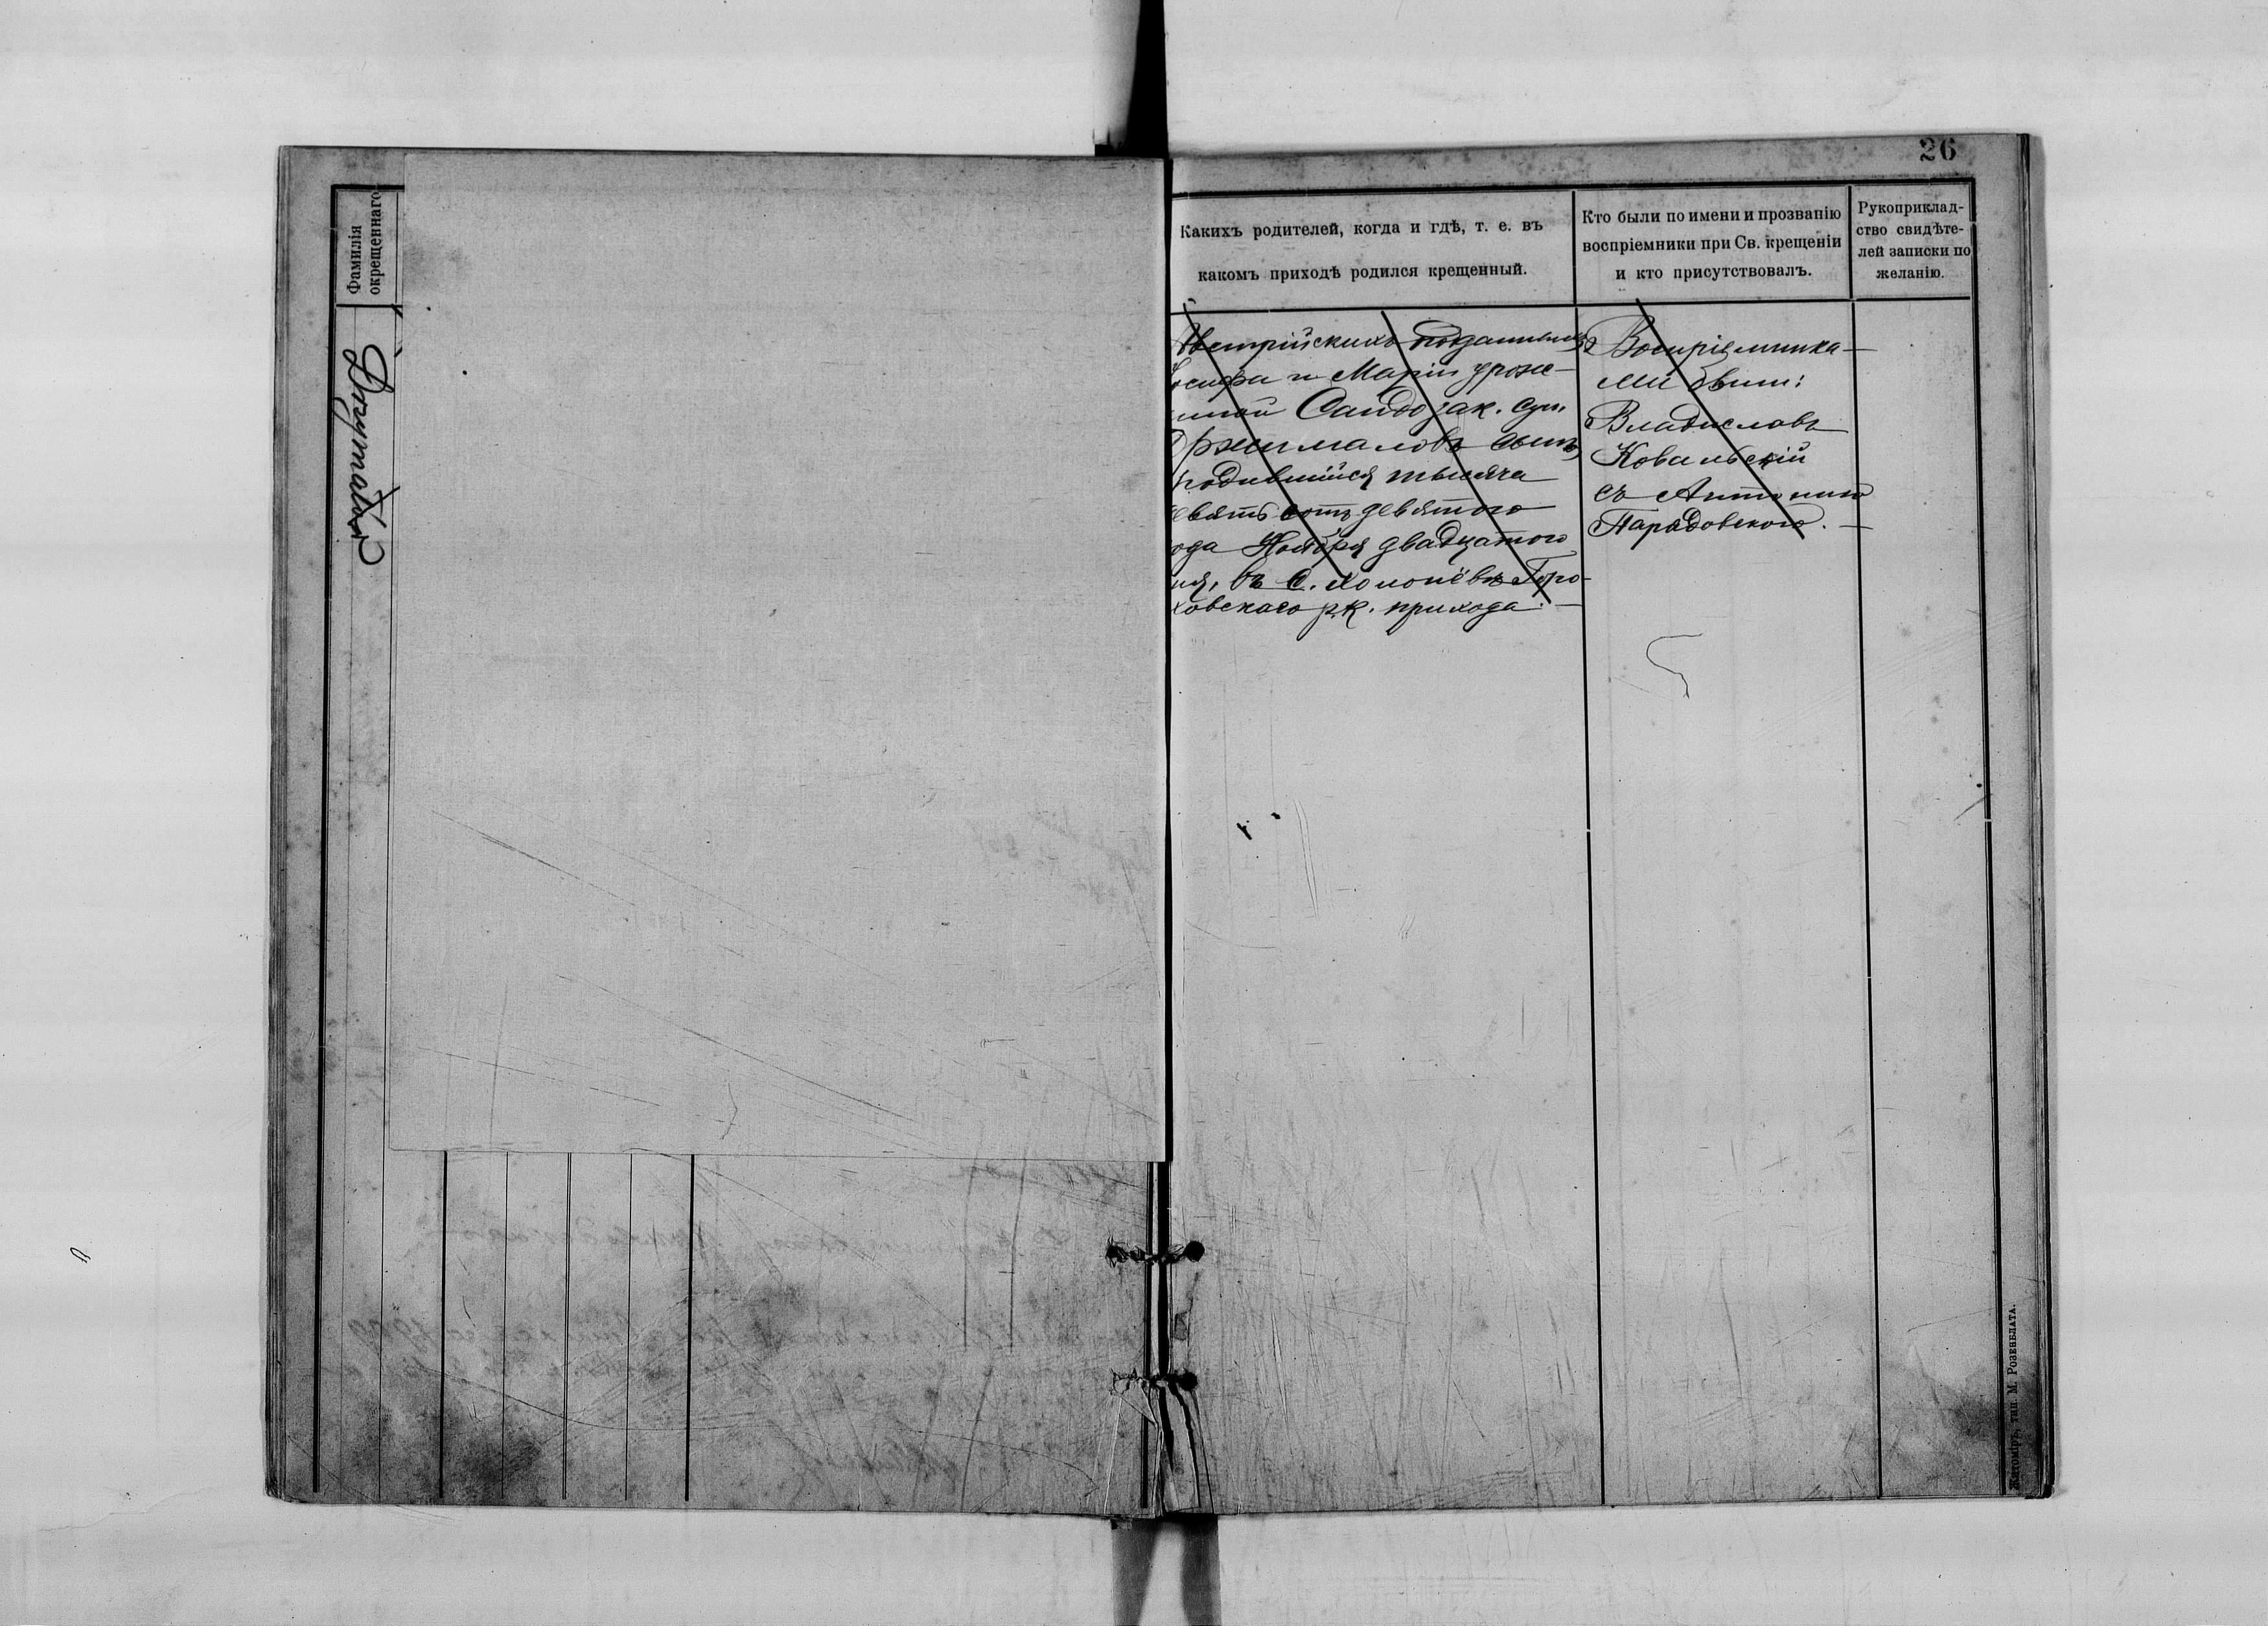 26
Фамилія
окрещеннаго
Каких​ъ родителей, когда и гдѣ, т. е. въ
какомъ приходѣ родился крещенный.
Кто были по имени и прозванію
воспріемники при Св. крещеніи
и кто присутствовалъ.
Рукоприклад-
ство свидѣте-
лей записки по
желанію.
Австрійскихъ подданныхъ
Іосифа и Маріи урож-
зак.
сынъ
родившійся тысяча
девятьсотъ девятого
года Ноября двадцатого
дня, въ с. Холонёвѣ Горо-
ховскаго р.к. прихода.
Воспріемника-
ми были:
Владиславъ
Ковальскій
съ Антониною
Парадовскою.
Житоміръ, тип. М. Розенблата.